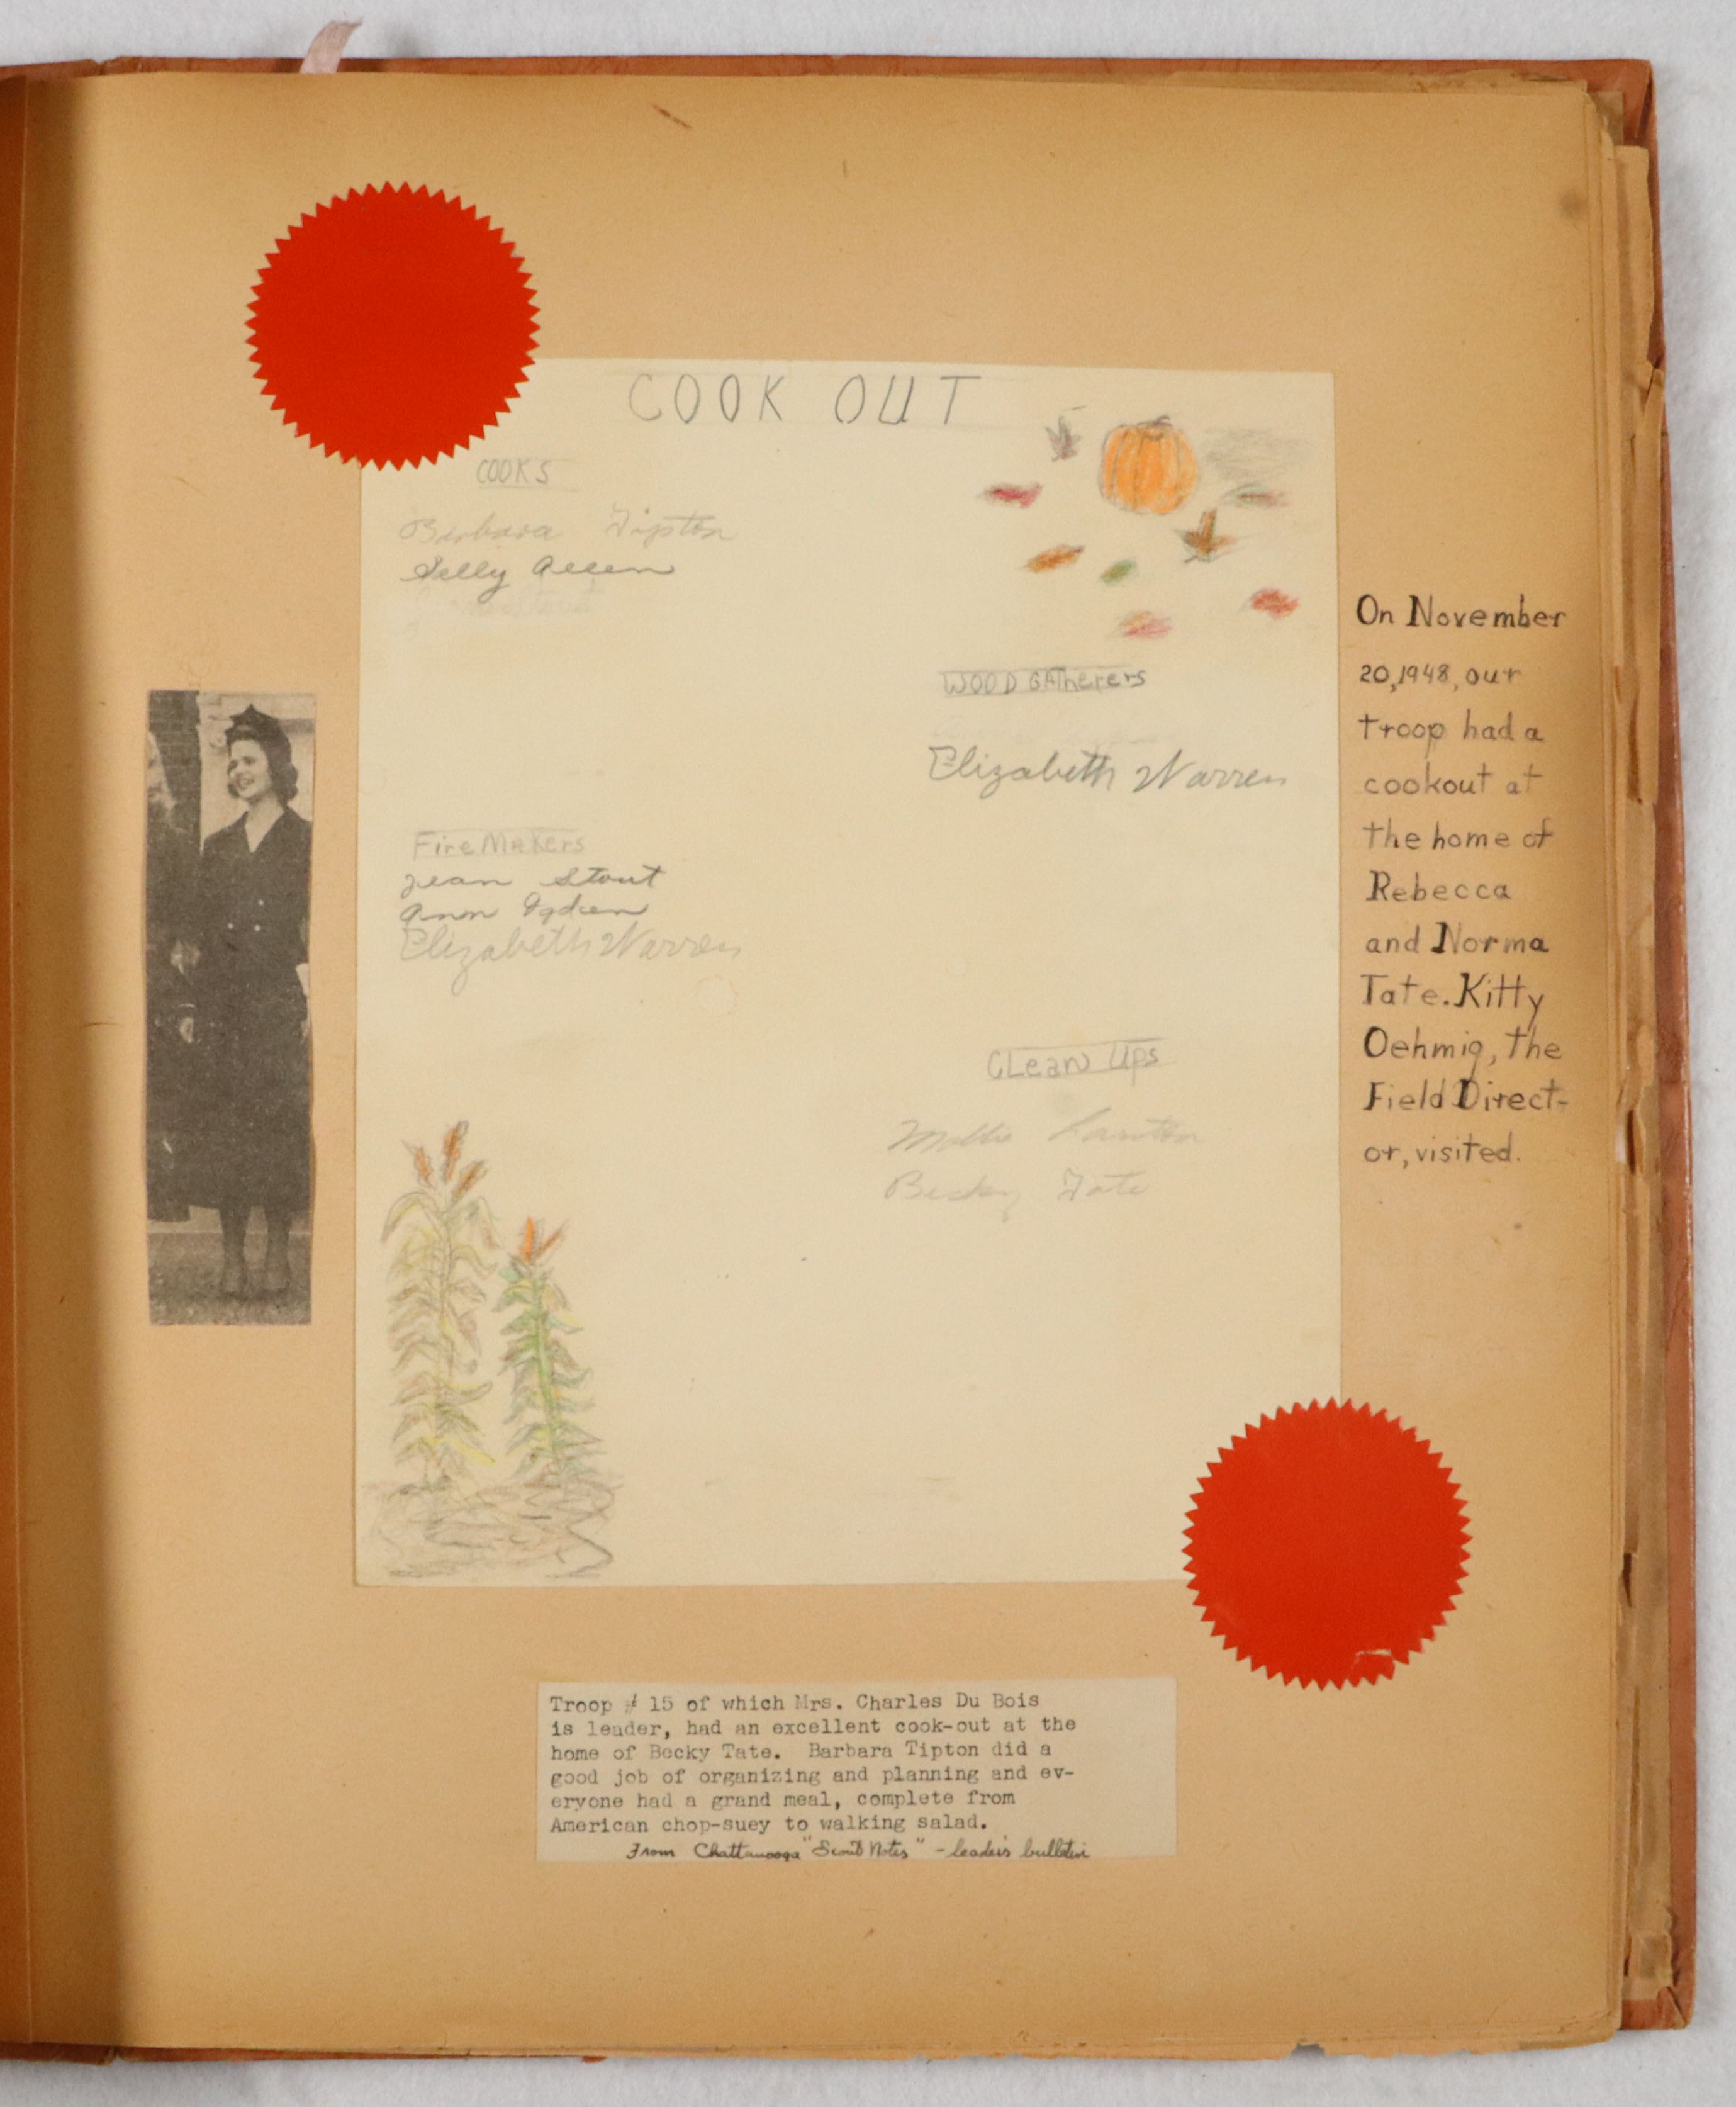 COOK OUT
COOKS
Barbara Tipton
Selly Allen
WOOD GATherers
Elizabeth Warren
Fire Makers
Jean Stout
Ann Ogden
Elizabeth Warren
CLean Ups
Mollie
Becky Tate
On November
20, 1948, our
troop had a
cookout at
the home of
Rebecca
and Norma
Tate. Kitty
Oehmig, the
Field Direct-
or, visited.
Troop # 15 of which Mrs. Charles Du Bois
is leader, had an excellent cook-out at the
home of Becky Tate. Barbara Tipton did a
good job of organizing and planning and ev-
eryone had a grand meal, complete from
American chop-suey to walking salad.
From Chattanooga "Scout Notes" - leader's bulletin